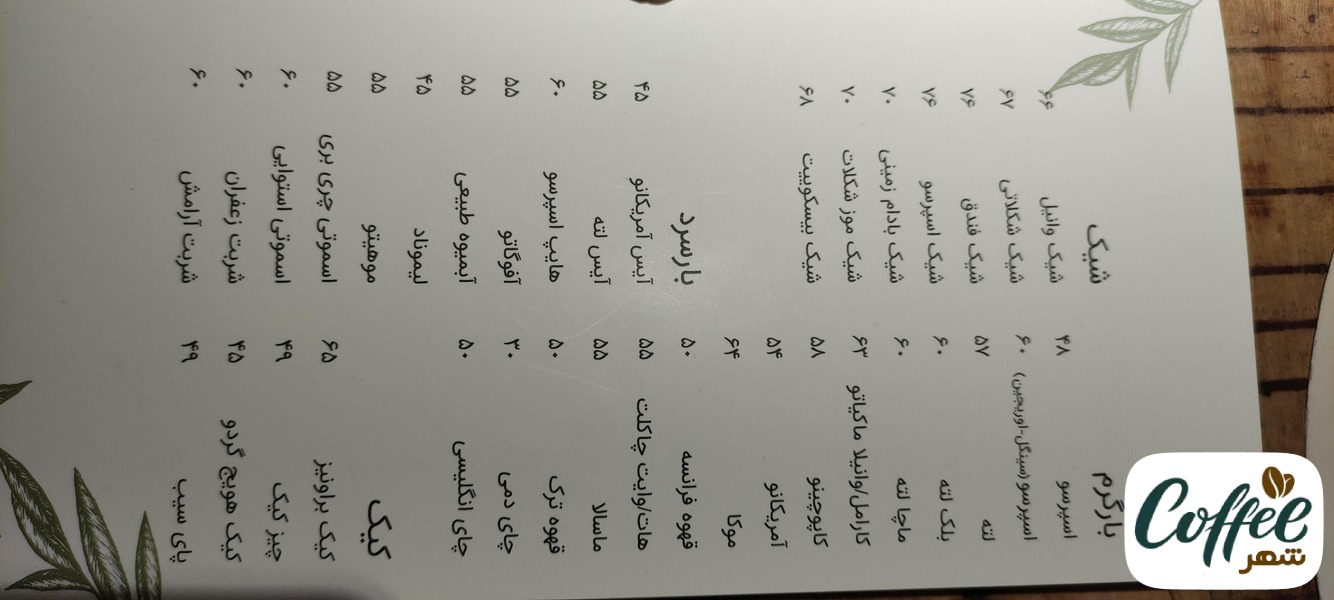 بارگرم
اسپرسو ۴۸
اسپرسو (سینگل-اوریجین) ۶۰
لته ۵۷
بلک لته ۶۰
ماچا لته ۶۰
کارامل/وانیلا ماکیاتو ۶۳
کاپوچینو ۵۸
آمریکانو ۵۴
موکا ۶۴
قهوه فرانسه ۵۰
هات/وایت چاکلت ۵۵
ماسالا ۵۵
قهوه ترک ۵۰
چای دمی ۳۰
چای انگلیسی ۵۰
کیک
کیک براونیز ۶۵
چیز کیک ۴۹
کیک هویج گردو ۴۵
پای سیب ۴۹
شیک
شیک وانیل ۶۶
شیک شکلاتی ۶۷
شیک فندق ۷۶
شیک اسپرسو ۷۶
شیک بادام زمینی ۷۰
شیک موز شکلات ۷۰
شیک بیسکوییت ۶۸
بارسرد
آیس آمریکانو ۴۵
آیس لته ۵۵
هایپ اسپرسو ۶۰
آفوگاتو ۵۵
آبمیوه طبیعی ۵۵
لیموناد ۴۵
موهیتو ۵۵
اسموتی چری بری ۵۵
اسموتی استوایی ۶۰
شربت زعفران ۶۰
شربت آرامش ۶۰
Coffee
شهر